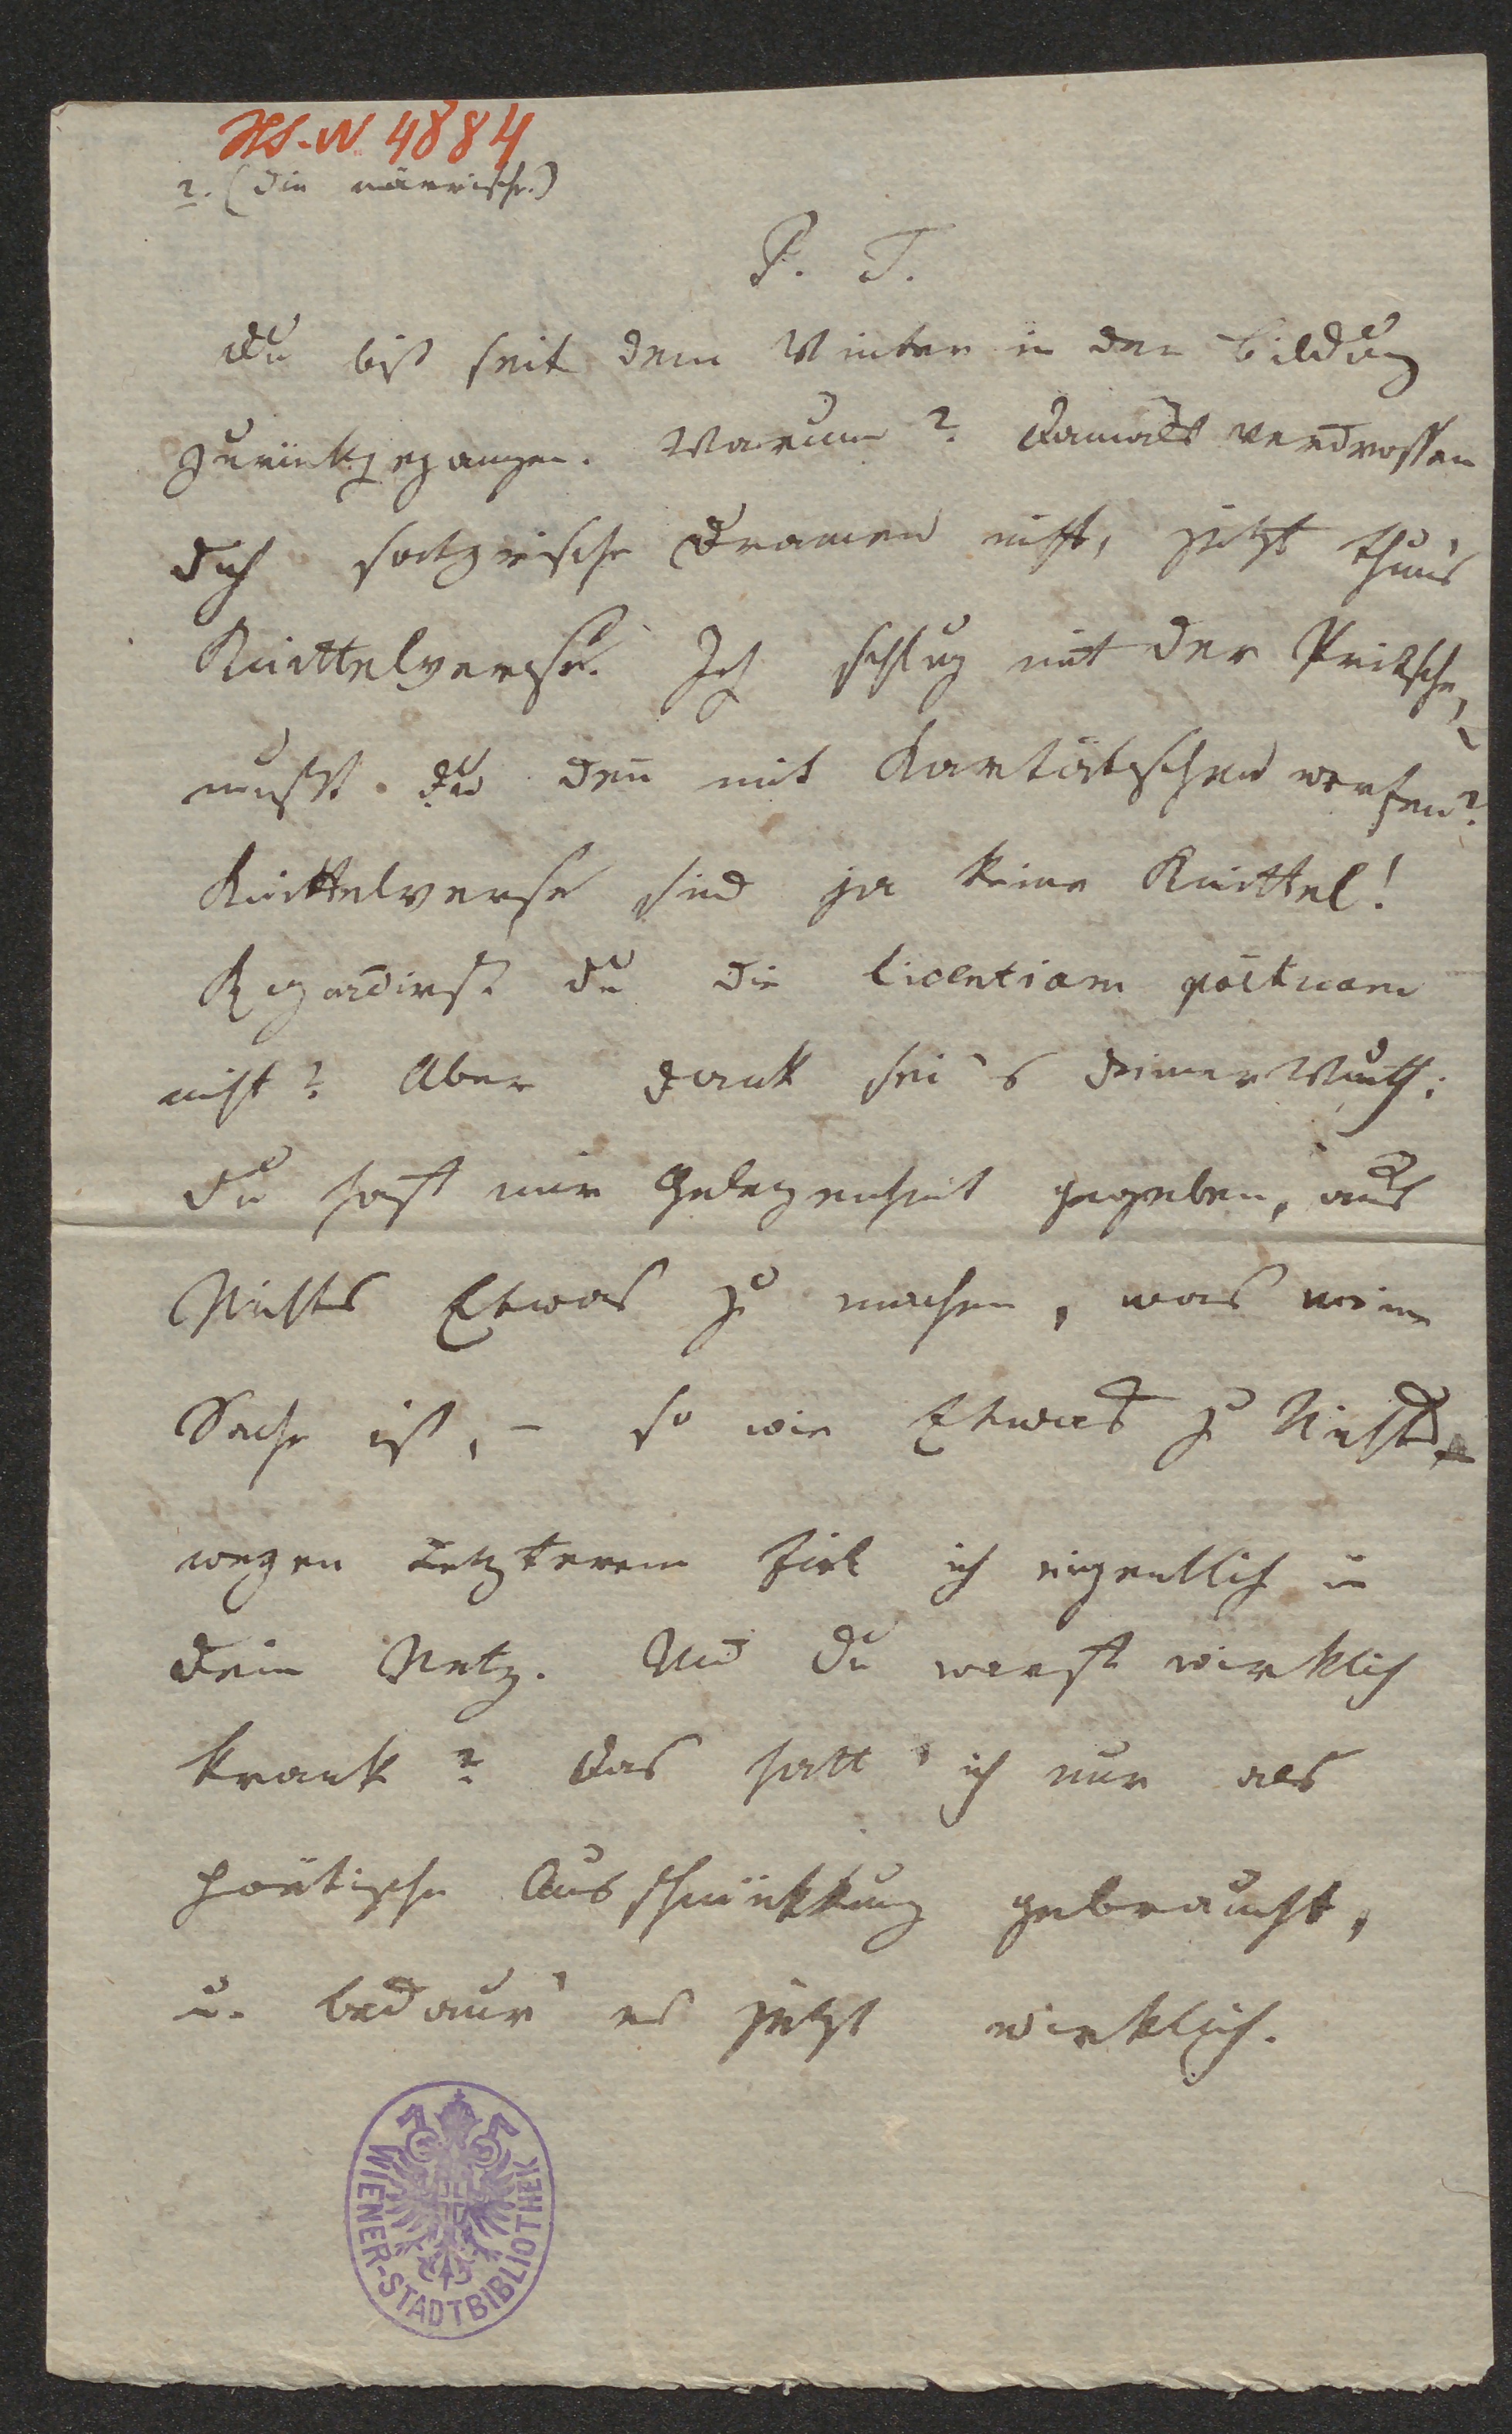 HS-N 4884
2. (die närrische)
P. T.
Du bist seit dem Winter in der Bildung
zurückgegangen. Warum? Damals verdrossen
dich satyrische Dramen nicht, jetzt thun's
Knittelverse. Ich schlug mit der Pritsche,
mußt du den̄ mit Kartätschen werfen?
Knittelverse sind ja keine Knittel!
Regardirst du die licentiam poëticam
nicht? Aber Dank sei's deiner Wuth:
du hast mir Gelegenheit gegeben, aus
Nichts Etwas zu machen, was meine
Sache ist, – so wie Etwas zu Nichts.
wegen Letzterem fiel ich eigentlich in
dein Netz. Und du warst wirklich
krank? Das hatt' ich nur als
poëtische Ausschmückkung gebraucht,
u. bedaur' es jetzt wirklich.
WIENER-STADTBIBLIOTHEK